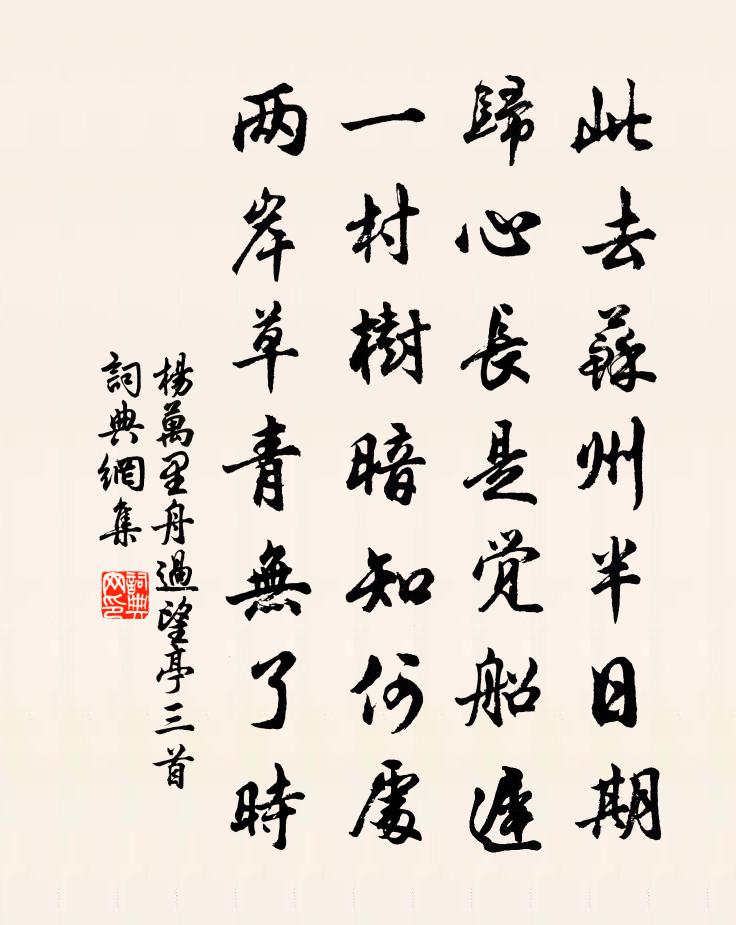 此去蘇州半日期
歸心長是覚船遲
一村樹暗知何處
两岸草青無了時
楊萬里舟過望亭三首
詞典網集
詞典网印